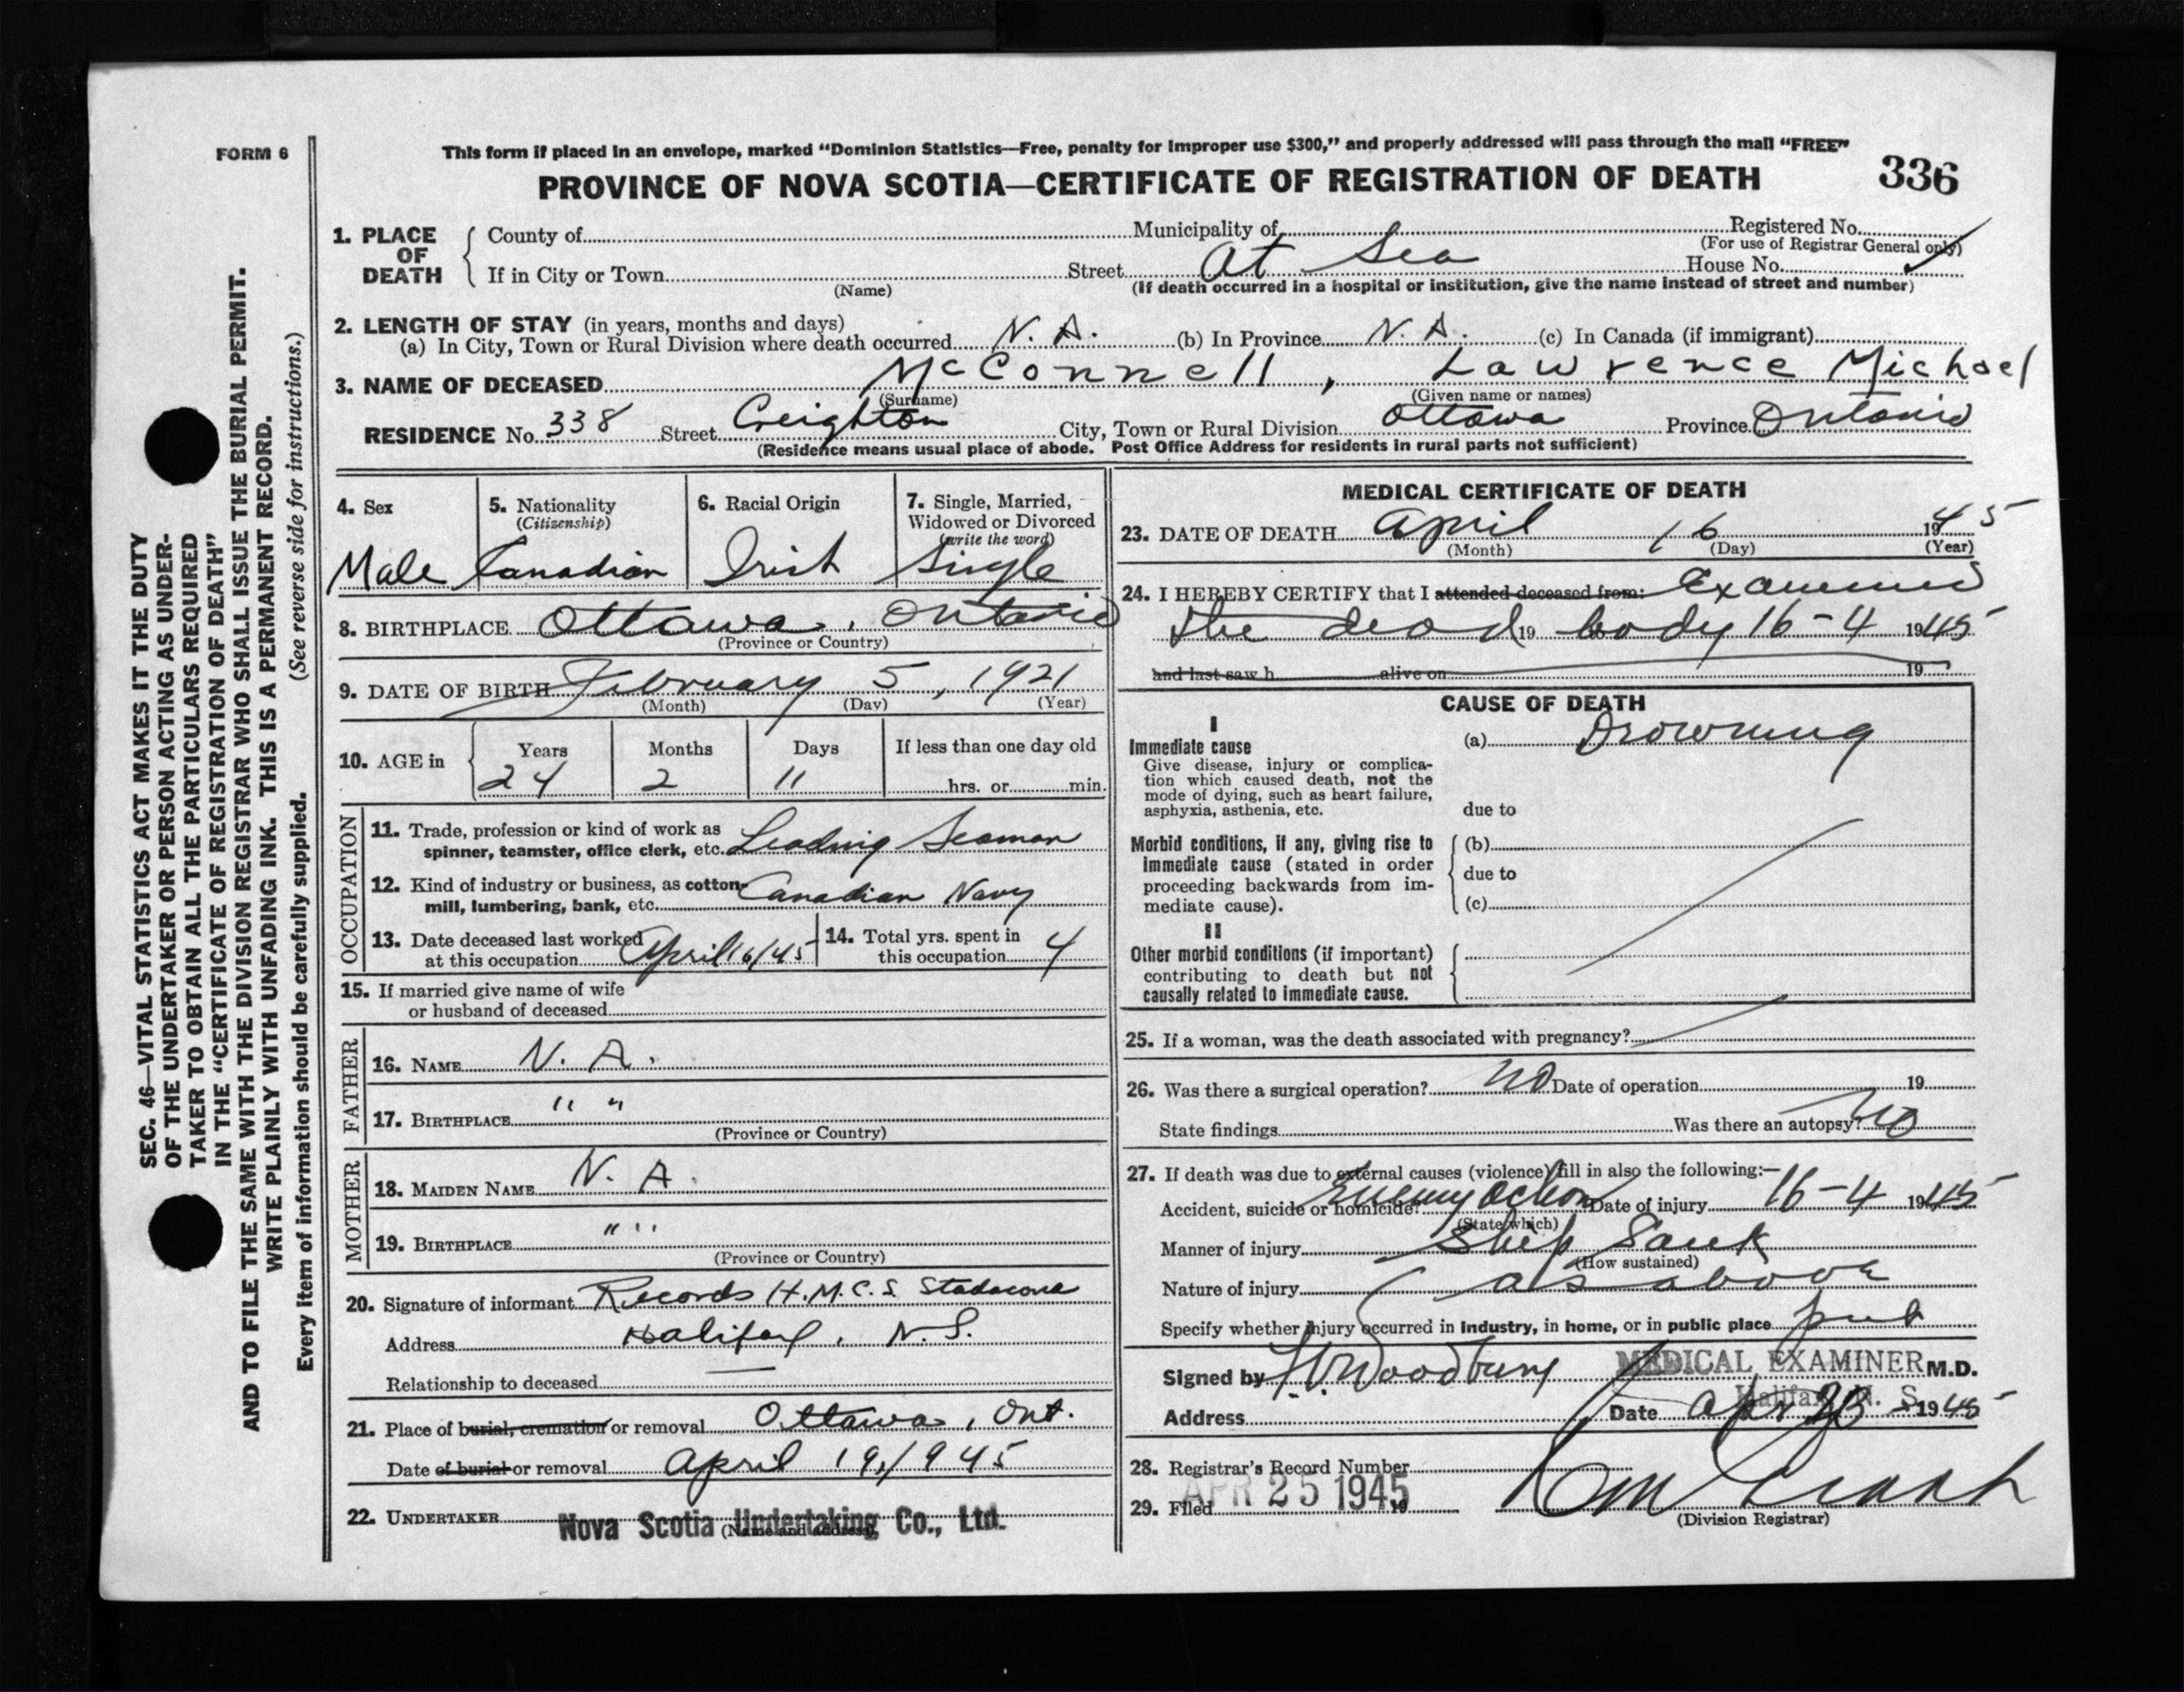 FORM 6
This form if placed in an envelope, marked "Dominion Statistics—Free, penalty for improper use $300," and properly addressed will pass through the mail "FREE"
PROVINCE OF NOVA SCOTIA—CERTIFICATE OF REGISTRATION OF DEATH
336
SEC. 46—VITAL STATISTICS ACT MAKES IT THE DUTY
OF THE UNDERTAKER OR PERSON ACTING AS UNDER-
TAKER TO OBTAIN ALL THE PARTICULARS REQUIRED
IN THE "CERTIFICATE OF REGISTRATION OF DEATH"
AND TO FILE THE SAME WITH THE DIVISION REGISTRAR WHO SHALL ISSUE THE BURIAL PERMIT.
WRITE PLAINLY WITH UNFADING INK. THIS IS A PERMANENT RECORD.
Every item of information should be carefully supplied. (See reverse side for instructions.)
1. PLACE OF DEATH
County of Municipality of Registered No.
(For use of Registrar General only)
If in City or Town Street At Sea House No.
(Name) (If death occurred in a hospital or institution, give the name instead of street and number)
2. LENGTH OF STAY (in years, months and days)
(a) In City, Town or Rural Division where death occurred N. A. (b) In Province N. A. (c) In Canada (if immigrant)
3. NAME OF DECEASED McConnell, Lawrence Michael
(Surname) (Given name or names)
RESIDENCE No. 338 Street Creighton City, Town or Rural Division Ottawa Province Ontario
(Residence means usual place of abode. Post Office Address for residents in rural parts not sufficient)
4. Sex
Male
5. Nationality
(Citizenship)
Canadian
6. Racial Origin
Irish
7. Single, Married,
Widowed or Divorced
(write the word)
Single
8. BIRTHPLACE Ottawa, Ontario
(Province or Country)
9. DATE OF BIRTH February 5, 1921
(Month) (Day) (Year)
10. AGE in
Years Months Days If less than one day old
24 2 11 hrs. or min.
OCCUPATION
11. Trade, profession or kind of work as
spinner, teamster, office clerk, etc. Leading Seaman
12. Kind of industry or business, as cotton-
mill, lumbering, bank, etc. Canadian Navy
13. Date deceased last worked
at this occupation April 16/45
14. Total yrs. spent in
this occupation 4
15. If married give name of wife
or husband of deceased
FATHER
16. NAME N. A.
17. BIRTHPLACE " "
(Province or Country)
MOTHER
18. MAIDEN NAME N. A.
19. BIRTHPLACE " "
(Province or Country)
20. Signature of informant Records H.M.C.S. Stadacona
Address Halifax, N. S.
Relationship to deceased —
21. Place of burial, cremation or removal Ottawa, Ont.
Date of burial or removal April 19, 1945
22. UNDERTAKER Nova Scotia Undertaking Co., Ltd.
(Name and address)
MEDICAL CERTIFICATE OF DEATH
23. DATE OF DEATH April 16 1945
(Month) (Day) (Year)
24. I HEREBY CERTIFY that I attended deceased from: Examined
the dead 19 body 16-4 1945
and last saw h alive on 19
CAUSE OF DEATH
I
Immediate cause
Give disease, injury or complica-
tion which caused death, not the
mode of dying, such as heart failure,
asphyxia, asthenia, etc.
(a) Drowning
due to
Morbid conditions, if any, giving rise to
immediate cause (stated in order
proceeding backwards from im-
mediate cause).
(b)
due to
(c)
II
Other morbid conditions (if important)
contributing to death but not
causally related to immediate cause.
25. If a woman, was the death associated with pregnancy?
26. Was there a surgical operation? No Date of operation 19
State findings Was there an autopsy? No
27. If death was due to external causes (violence) fill in also the following:—
Accident, suicide or homicide? Enemy Action Date of injury 16-4 1945
(State which)
Manner of injury Ship Sank
(How sustained)
Nature of injury as above
Specify whether injury occurred in industry, in home, or in public place pub
Signed by Woodbury MEDICAL EXAMINER M.D.
Halifax N. S.
Address Date Apr 1945
28. Registrar's Record Number
29. Filed APR 25 1945 19
(Division Registrar)